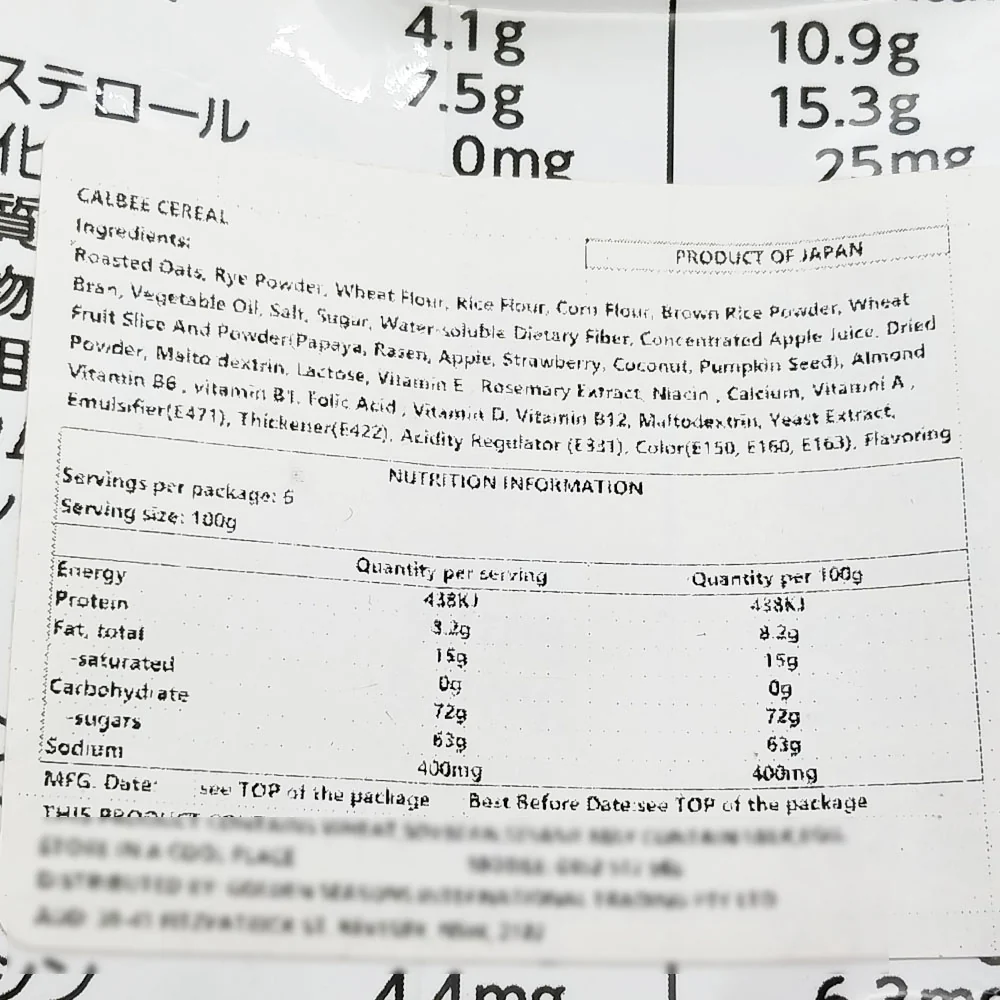 4.1g 10.9g
ステロール 7.5g 15.3g
化 0mg 25mg
質
物
CALBEE CEREAL
Ingredients:
PRODUCT OF JAPAN
Roasted Oats, Rye Powder, Wheat Flour, Rice Flour, Corn Flour, Brown Rice Powder, Wheat
Bran, Vegetable Oil, Salt, Sugar, Water-soluble Dietary Fiber, Concentrated Apple Juice, Dried
Fruit Slice And Powder(Papaya, Rasen, Appie, Strawberry, Coconut, Pumpkin Seed), Almond
Powder, Malto dextrin, Lactose, Vitamin E Rosemary Extract, Niacin , Calcium, Vitamni A ,
Vitamin B6 , vitamin B1, Folic Acid , Vitamin D, Vitamin B12, Maltodextrin, Yeast Extract,
Emulsifier(E471), Thickener(E422), Acidity Regulator (E331), Color(E150, E160, E163), Flavoring
NUTRITION INFORMATION
Servings per package: 6
Serving size: 100g
Quantity per serving Quantity per 100g
Energy 438KJ 438KJ
Protein 8.2g
Fat, total 15g 15g
-saturated 0g 0g
Carbohydrate 72g 72g
-sugars 63g 63g
Sodium 400mg 400mg
MFG. Date: see TOP of the package Best Before Date:see TOP of the package
THIS PRODUCT
4.4mg